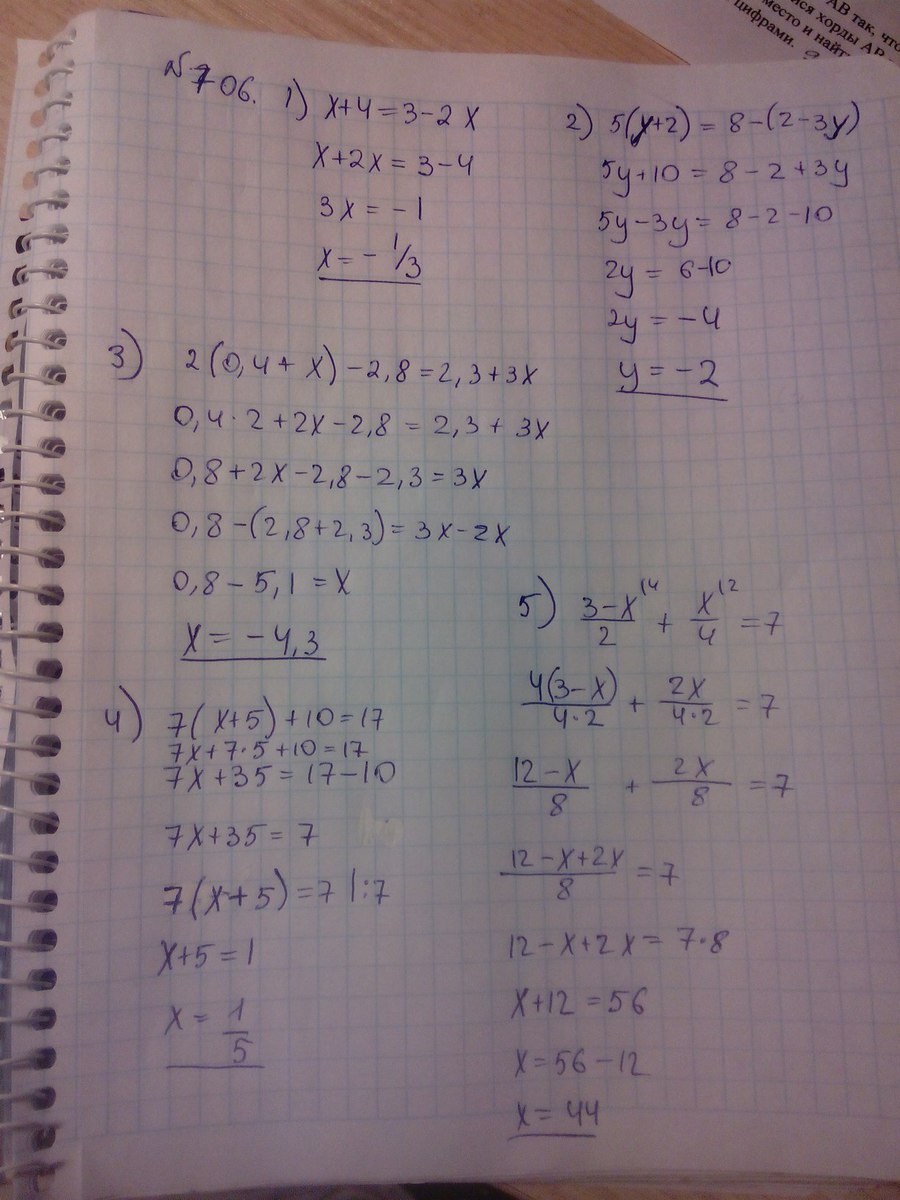 АВ так, что
ся хорды АВ
место и найт
цифрами.
№706. 1) x+4=3-2x
x+2x=3-4
3x=-1
x=-1/3
2) 5(y+2)=8-(2-3y)
5y+10=8-2+3y
5y-3y=8-2-10
2y=6-10
2y=-4
y=-2
3) 2(0,4+x)-2,8=2,3+3x
0,4·2+2x-2,8=2,3+3x
0,8+2x-2,8-2,3=3x
0,8-(2,8+2,3)=3x-2x
0,8-5,1=x
x=-4,3
4) 7(x+5)+10=17
7x+7·5+10=17
7x+35=17-10
7x+35=7
7(x+5)=7 |:7
x+5=1
x=1/5
5) (3-x)/2 |4 + x/4 |2 =7
4(3-x)/(4·2) + 2x/(4·2) =7
(12-x)/8 + 2x/8 =7
(12-x+2x)/8 =7
12-x+2x=7·8
x+12=56
x=56-12
x=44